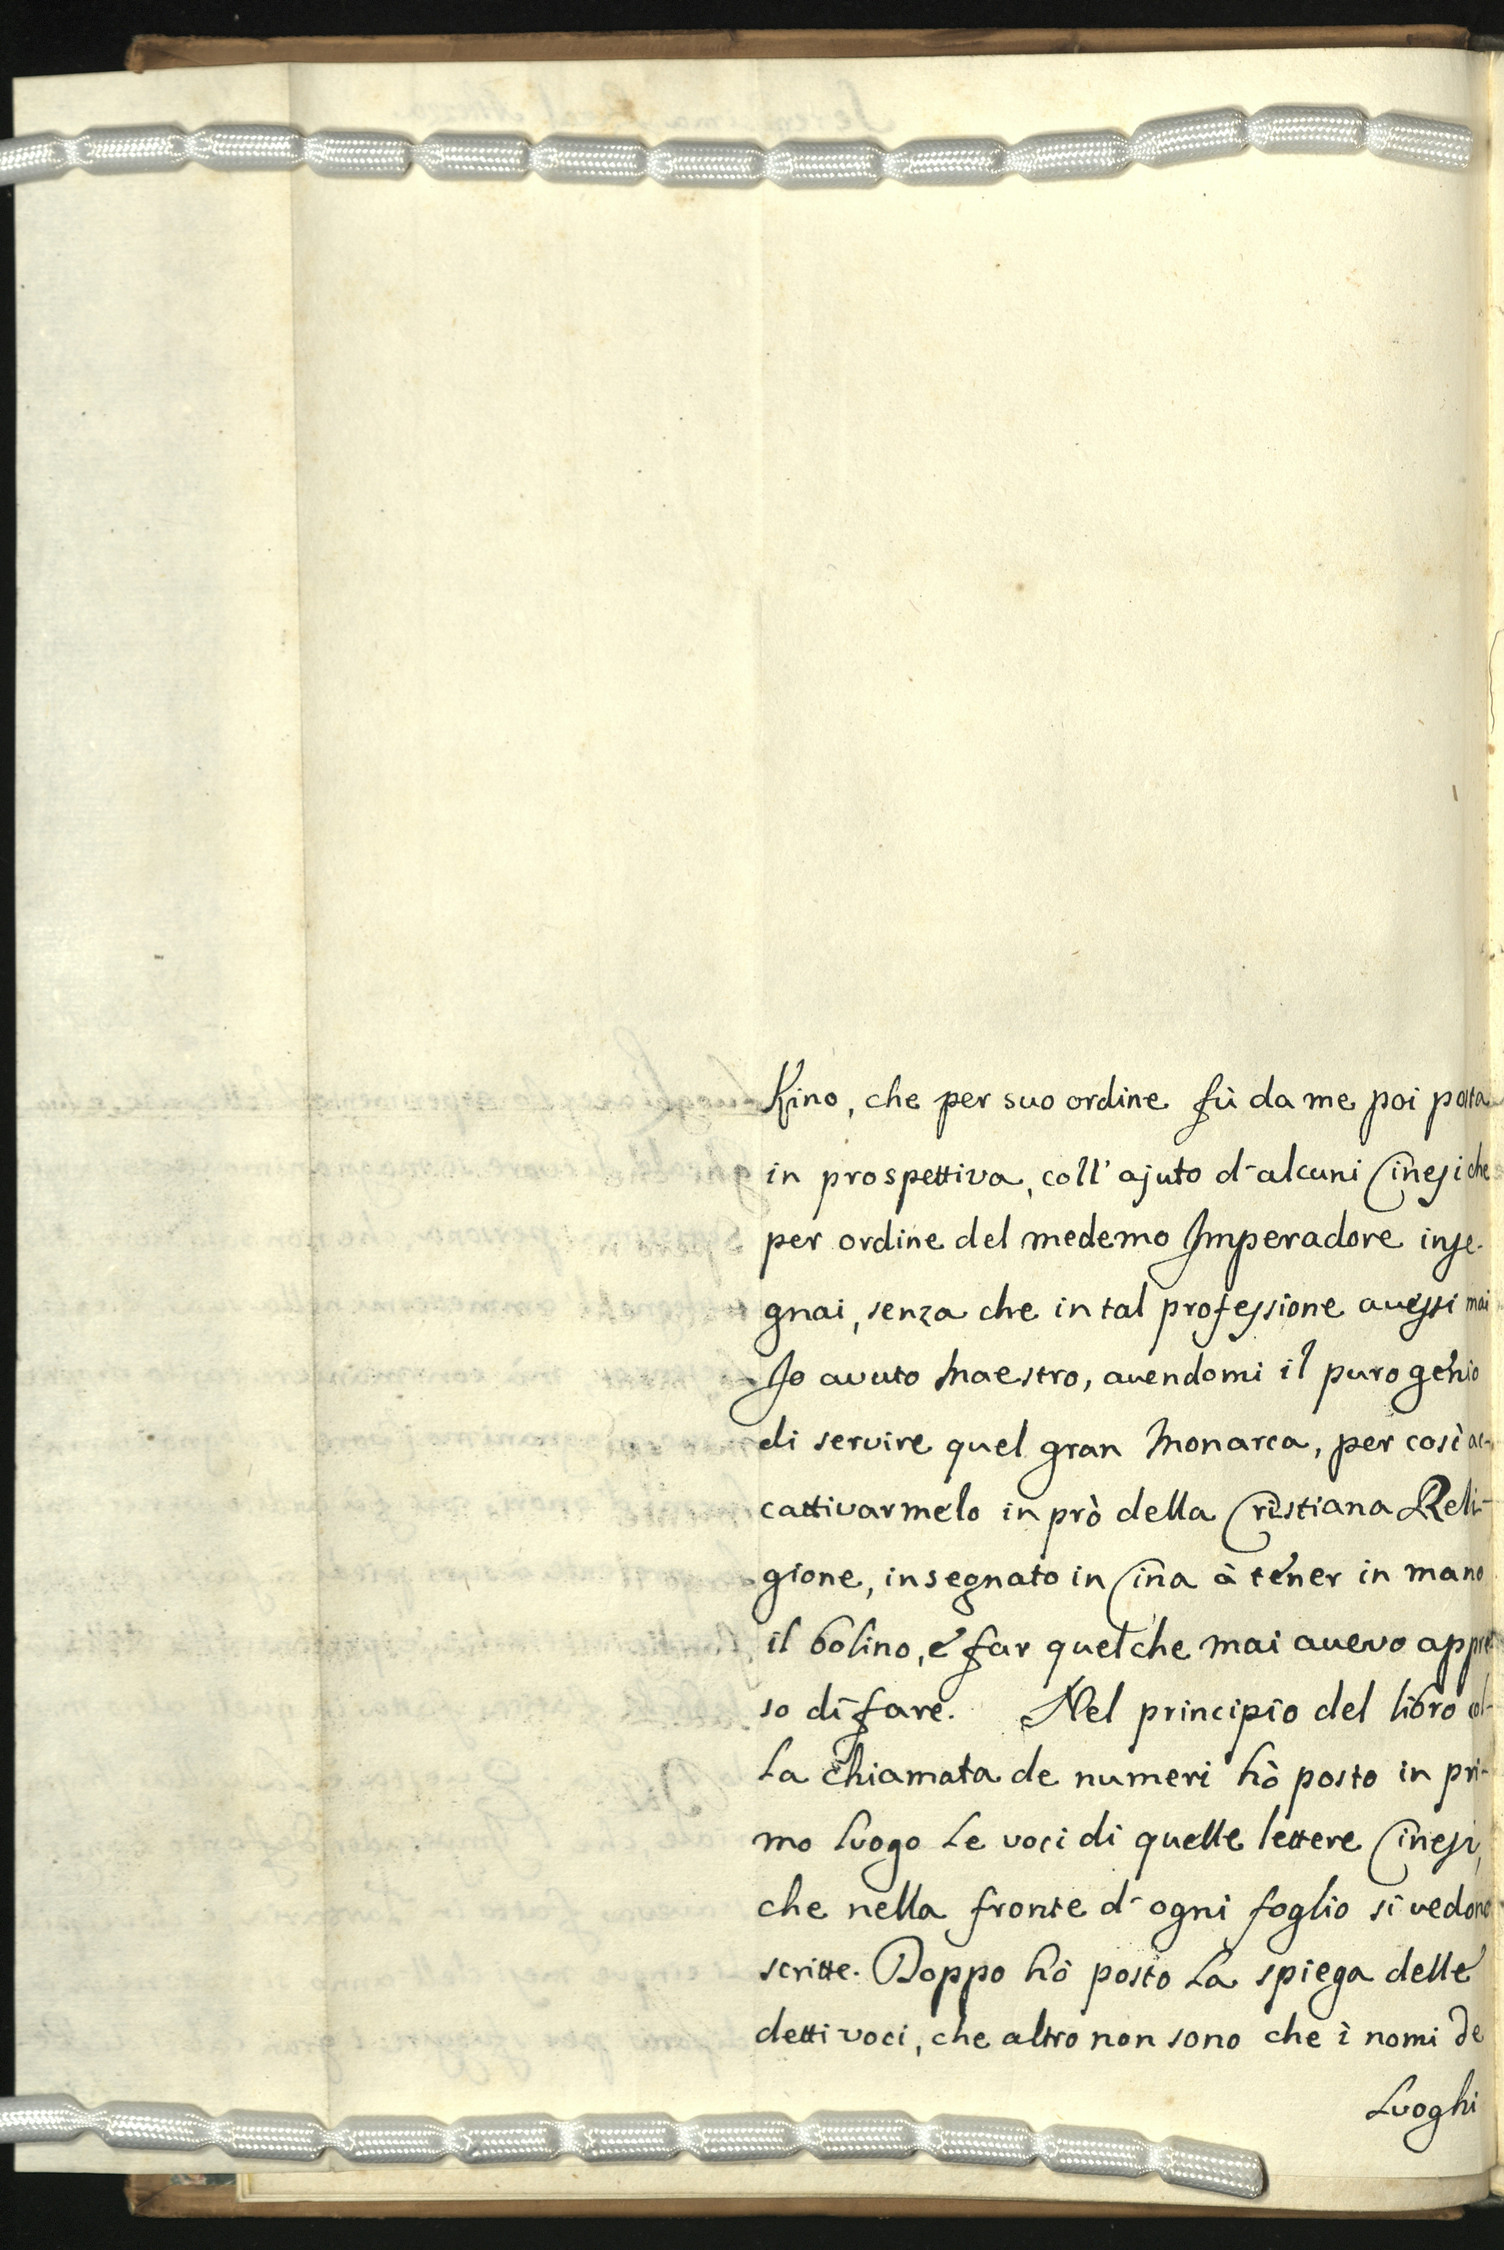 Kino, che per suo ordine fù da me poi posta
in prospettiva, coll' ajuto d'alcuni Cinesi che
per ordine del medemo Imperadore inse-
gnai, senza che in tal professione avessi mai
Io avuto Maestro, avendomi il puro genio
di servire quel gran Monarca, per così ac-
cattivarmelo in prò della Cristiana Reli-
gione, insegnato in Cina à tener in mano
il bolino, e far quel che mai avevo appre
so di fare. Nel principio del libro col-
la chiamata de numeri hò posto in pri-
mo luogo le voci di quelle lettere Cinesi,
che nella fronte d'ogni foglio si vedono
scritte. Doppo hò posto la spiega delle
detti voci, che altro non sono che i nomi de
Luoghi